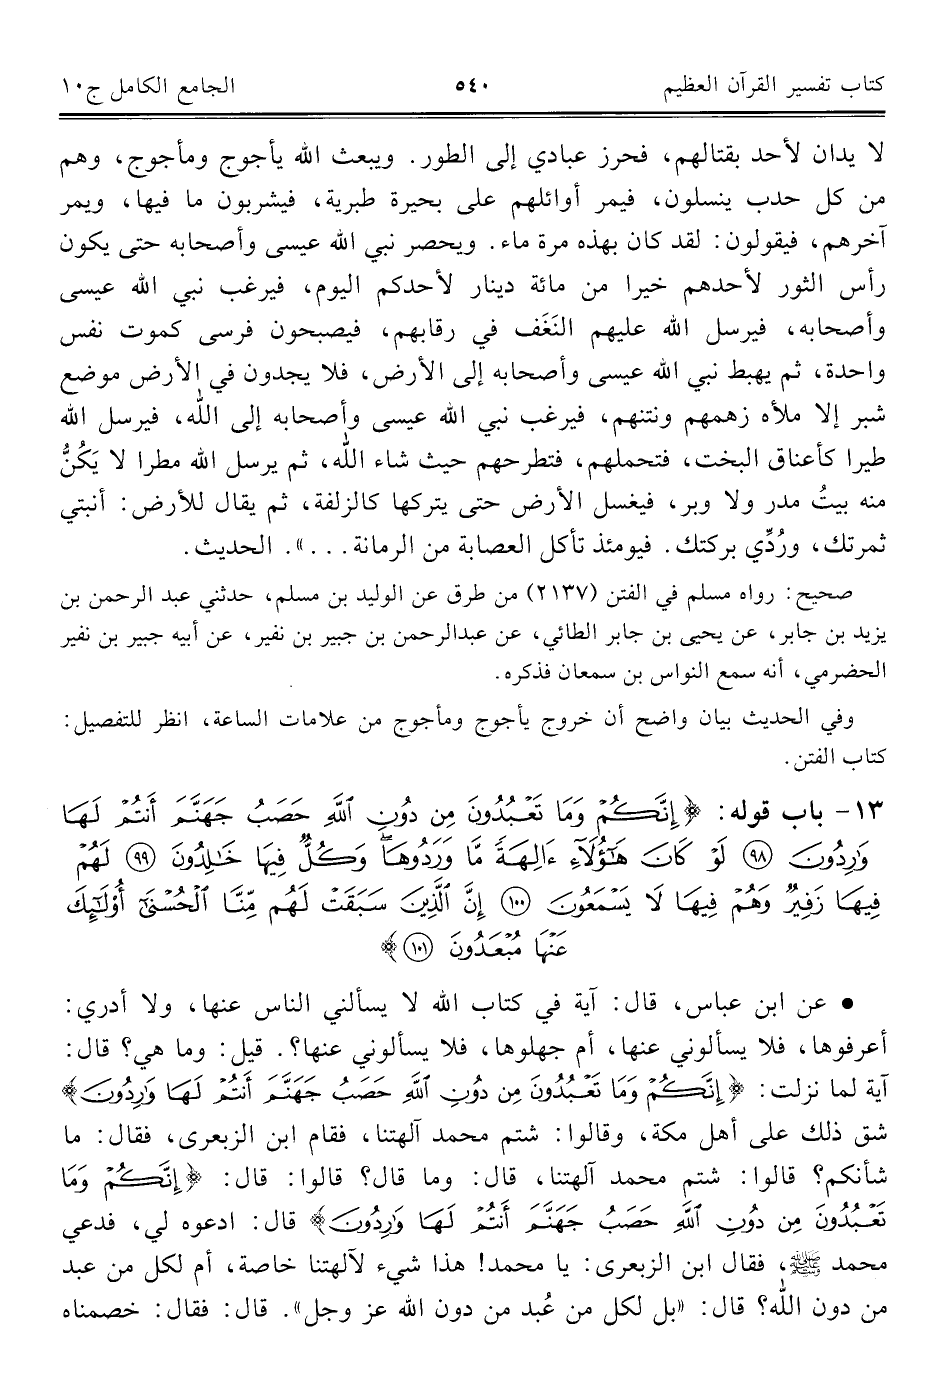 كتاب تفسير القرآن العظيم ٥٤٠ الجامع الكامل ج١٠
لا يدان لأحد بقتالهم، فحرز عبادي إلى الطور. ويبعث الله يأجوج ومأجوج، وهم
من كل حدب ينسلون، فيمر أوائلهم على بحيرة طبرية، فيشربون ما فيها، ويمر
آخرهم، فيقولون: لقد كان بهذه مرة ماء. ويحصر نبي الله عيسى وأصحابه حتى يكون
رأس الثور لأحدهم خيرا من مائة دينار لأحدكم اليوم، فيرغب نبي الله عيسى
وأصحابه، فيرسل الله عليهم النَغَف في رقابهم، فيصبحون فرسى كموت نفس
واحدة، ثم يهبط نبي الله عيسى وأصحابه إلى الأرض، فلا يجدون في الأرض موضع
شبر إلا ملأه زهمهم ونتنهم، فيرغب نبي الله عيسى وأصحابه إلى الله، فيرسل الله
طيرا كأعناق البخت، فتحملهم، فتطرحهم حيث شاء الله، ثم يرسل الله مطرا لا يَكُنُّ
منه بيتُ مدر ولا وبر، فيغسل الأرض حتى يتركها كالزلفة، ثم يقال للأرض: أنبتي
ثمرتك، ورُدِّي بركتك. فيومئذ تأكل العصابة من الرمانة ...». الحديث.
صحيح: رواه مسلم في الفتن (٢١٣٧) من طرق عن الوليد بن مسلم، حدثني عبد الرحمن بن
يزيد بن جابر، عن يحيى بن جابر الطائي، عن عبدالرحمن بن جبير بن نفير، عن أبيه جبير بن نفير
الحضرمي، أنه سمع النواس بن سمعان فذكره.
وفي الحديث بيان واضح أن خروج يأجوج ومأجوج من علامات الساعة، انظر للتفصيل:
كتاب الفتن.
١٣- باب قوله: ﴿إِنَّكُمْ وَمَا تَعْبُدُونَ مِن دُونِ ٱللَّهِ حَصَبُ جَهَنَّمَ أَنتُمْ لَهَا
وَٰرِدُونَ ٩٨ لَوْ كَانَ هَٰٓؤُلَآءِ ءَالِهَةً مَّا وَرَدُوهَا ۖ وَكُلٌّ فِيهَا خَٰلِدُونَ ٩٩ لَهُمْ
فِيهَا زَفِيرٌ وَهُمْ فِيهَا لَا يَسْمَعُونَ ١٠٠ إِنَّ ٱلَّذِينَ سَبَقَتْ لَهُم مِّنَّا ٱلْحُسْنَىٰٓ أُو۟لَٰٓئِكَ
عَنْهَا مُبْعَدُونَ ١٠١﴾
• عن ابن عباس، قال: آية في كتاب الله لا يسألني الناس عنها، ولا أدري:
أعرفوها، فلا يسألوني عنها، أم جهلوها، فلا يسألوني عنها؟. قيل: وما هي؟ قال:
آية لما نزلت: ﴿إِنَّكُمْ وَمَا تَعْبُدُونَ مِن دُونِ ٱللَّهِ حَصَبُ جَهَنَّمَ أَنتُمْ لَهَا وَٰرِدُونَ﴾
شق ذلك على أهل مكة، وقالوا: شتم محمد آلهتنا، فقام ابن الزبعرى، فقال: ما
شأنكم؟ قالوا: شتم محمد آلهتنا، قال: وما قال؟ قالوا: قال: ﴿إِنَّكُمْ وَمَا
تَعْبُدُونَ مِن دُونِ ٱللَّهِ حَصَبُ جَهَنَّمَ أَنتُمْ لَهَا وَٰرِدُونَ﴾ قال: ادعوه لي، فدعي
محمد ﷺ، فقال ابن الزبعرى: يا محمد! هذا شيء لآلهتنا خاصة، أم لكل من عبد
من دون الله؟ قال: «بل لكل من عُبد من دون الله عز وجل». قال: فقال: خصمناه